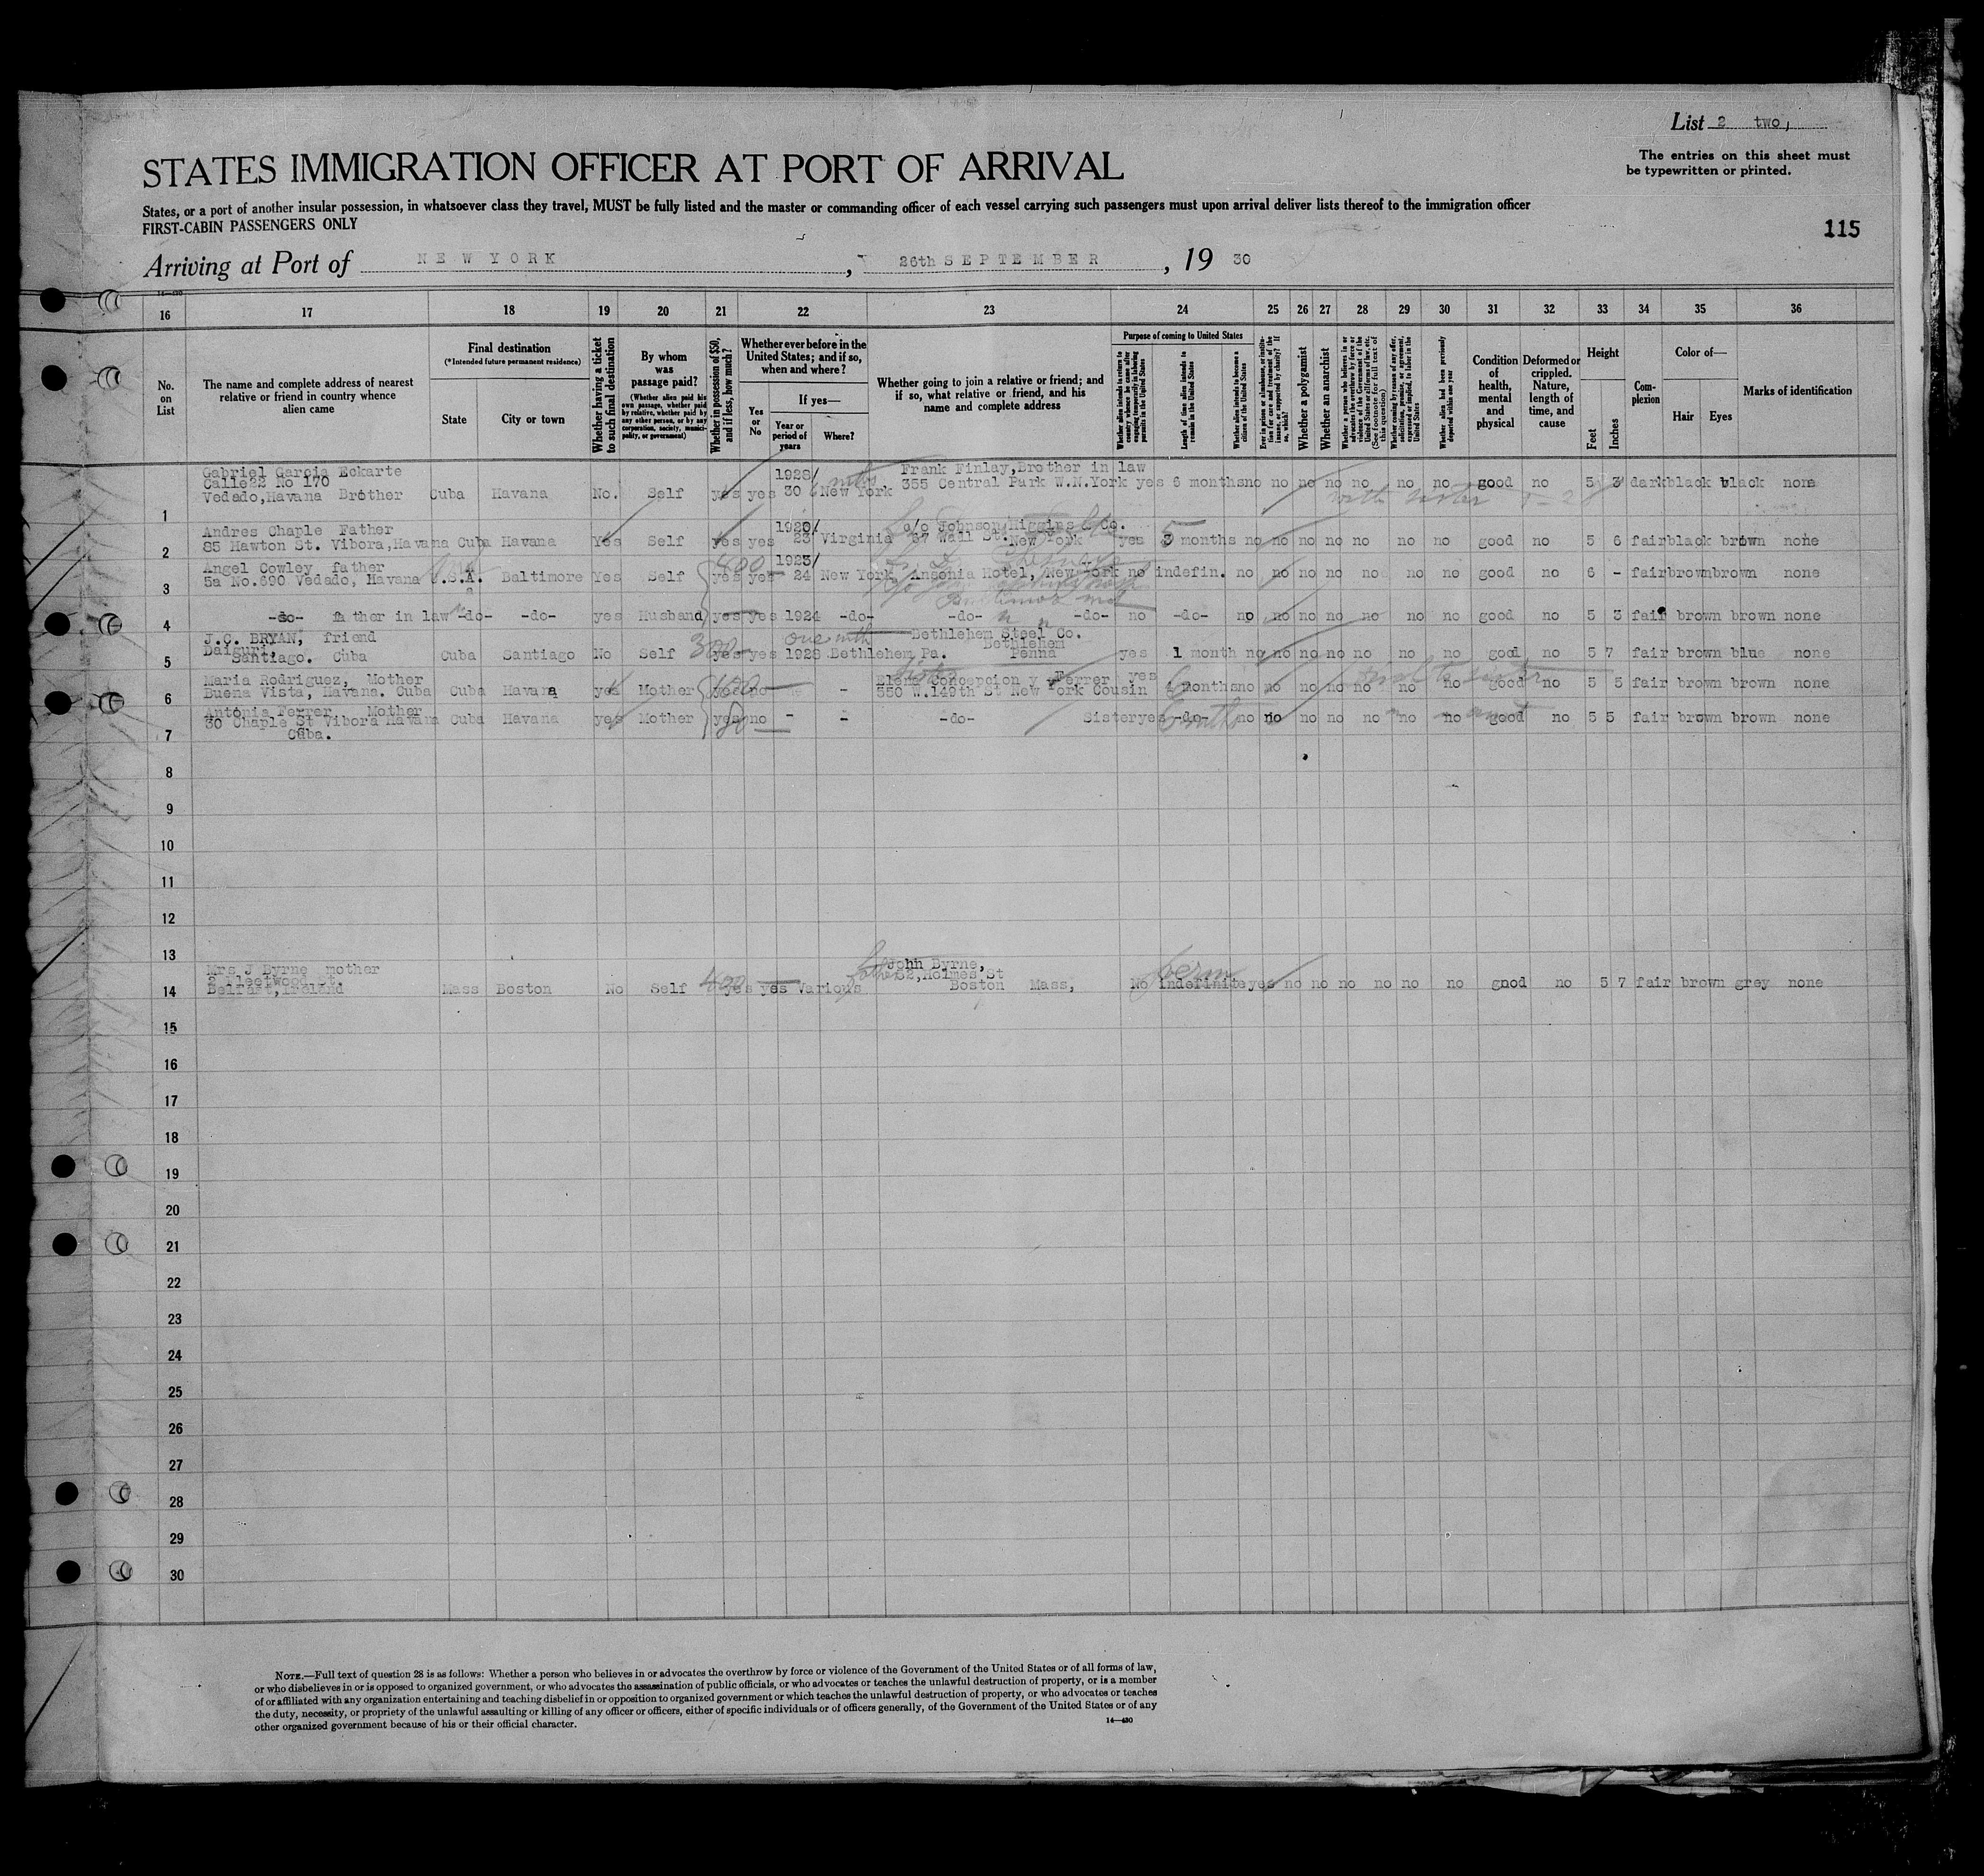 List 2 two,
The entries on this sheet must
be typewritten or printed.
STATES IMMIGRATION OFFICER AT PORT OF ARRIVAL
States, or a port of another insular possession, in whatsoever class they travel, MUST be fully listed and the master or commanding officer of each vessel carrying such passengers must upon arrival deliver lists thereof to the immigration officer
FIRST-CABIN PASSENGERS ONLY
115
Arriving at Port of NEW YORK, 26th SEPTEMBER, 19 30
16 17 18 19 20 21 22 23 24 25 26 27 28 29 30 31 32 33 34 35 36
No. on List
The name and complete address of nearest relative or friend in country whence alien came
Final destination
(*Intended future permanent residence)
State
City or town
Whether having a ticket to such final destination
By whom was passage paid?
(Whether alien paid his own passage, whether paid by relative, whether paid by any other person, or by any corporation, society, municipality, or government)
Whether in possession of $50, and if less, how much?
Whether ever before in the United States; and if so, when and where?
Yes or No
If yes—
Year or period of years
Where?
Whether going to join a relative or friend; and if so, what relative or friend, and his name and complete address
Purpose of coming to United States
Whether alien intends to return to country whence he came after engaging temporarily in laboring pursuits in the United States
Length of time alien intends to remain in the United States
Whether alien intends to become a citizen of the United States
Ever in prison or almshouse, or institution for care and treatment of the insane, or supported by charity? If so, which?
Whether a polygamist
Whether an anarchist
Whether a person who believes in or advocates the overthrow by force or violence of the Government of the United States or all forms of law, etc. (See footnote for full text of this question)
Whether coming by reason of any offer, solicitation, promise, or agreement, expressed or implied, to labor in the United States
Whether alien had been previously deported within one year
Condition of health, mental and physical
Deformed or crippled. Nature, length of time, and cause
Height
Feet
Inches
Complexion
Color of—
Hair
Eyes
Marks of identification
Gabriel Garcia Eckarte 1928/ mths Frank Finlay,Brother in law
Calle23 No 170
Vedado,Havana Brother Cuba Havana No. Self yes yes 30 New York 355 Central Park W.N.York yes 6 months no no no no no no no good no 5 3 dark black black none
1
Andres Chaple Father 1920/ c/o Johnson Higgins & Co.
85 Hawton St. Vibora,Havana Cuba Havana Yes Self yes yes 23 Virginia 67 Wall St. New York yes 3 months no no no no no no no good no 5 6 fair black brown none
2
Angel Cowley father 1923/
5a No.690 Vedado, Havana U.S.A. Baltimore Yes Self yes yes 24 New York Ansonia Hotel, New York no indefin. no no no no no no no good no 6 - fair brown brown none
3
-do- father in law -do- -do- yes Husband yes yes 1924 -do- -do- -do- no -do- no no no no no no no good no 5 3 fair brown brown none
4
J.C. BRYAN, friend one mth Bethlehem Steel Co.
Daiguri, Bethlehem
Santiago. Cuba Cuba Santiago No Self 300 yes yes 1928 Bethlehem Pa. Penna yes 1 month no no no no no no no good no 5 7 fair brown blue none
5
Maria Rodriguez, Mother Elena Concepcion y Ferrer yes
Buena Vista, Havana. Cuba Cuba Havana yes Mother no - 550 W.149th St New York Cousin months no no no no no no no good no 5 5 fair brown brown none
6
Antonia Ferrer Mother
30 Chaple St Vibora Havana Cuba Havana yes Mother yes no - - -do- Sister yes -do- no no no no no no no good no 5 5 fair brown brown none
Cuba.
7
8
9
10
11
12
13
Mrs J Byrne mother John Byrne,
2 Fleetwood St. father 52,Holmes St
Belfast,Ireland Mass Boston No Self 400 yes yes Various Boston Mass, No perm indefinite yes no no no no no no gnod no 5 7 fair brown grey none
14
15
16
17
18
19
20
21
22
23
24
25
26
27
28
29
30
NOTE.—Full text of question 28 is as follows: Whether a person who believes in or advocates the overthrow by force or violence of the Government of the United States or of all forms of law,
or who disbelieves in or is opposed to organized government, or who advocates the assassination of public officials, or who advocates or teaches the unlawful destruction of property, or is a member
of or affiliated with any organization entertaining and teaching disbelief in or opposition to organized government or which teaches the unlawful destruction of property, or who advocates or teaches
the duty, necessity, or propriety of the unlawful assaulting or killing of any officer or officers, either of specific individuals or of officers generally, of the Government of the United States or of any
other organized government because of his or their official character.
14—430